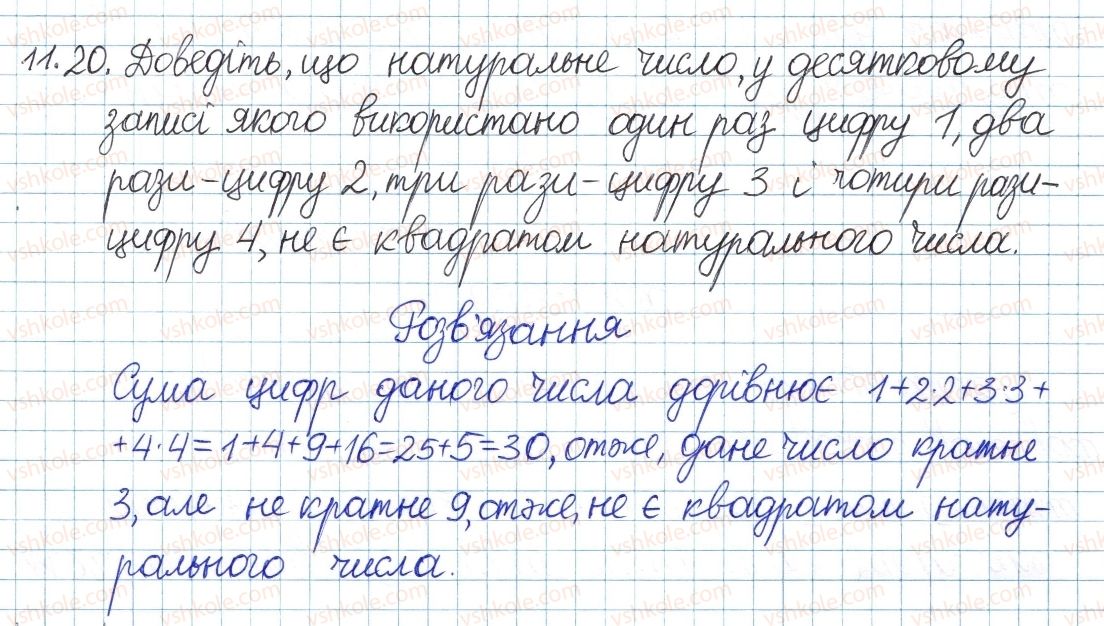 11.20. Доведіть, що натуральне число, у десятковому
записі якого використано один раз цифру 1, два
рази-цифру 2, три рази-цифру 3 і чотири рази-
цифру 4, не є квадратом натурального числа.
Розв'язання
Сума цифр даного числа дорівнює 1+2·2+3·3+
+4·4=1+4+9+16=25+5=30, отже, дане число кратне
3, але не кратне 9, отже, не є квадратом нату-
рального числа.